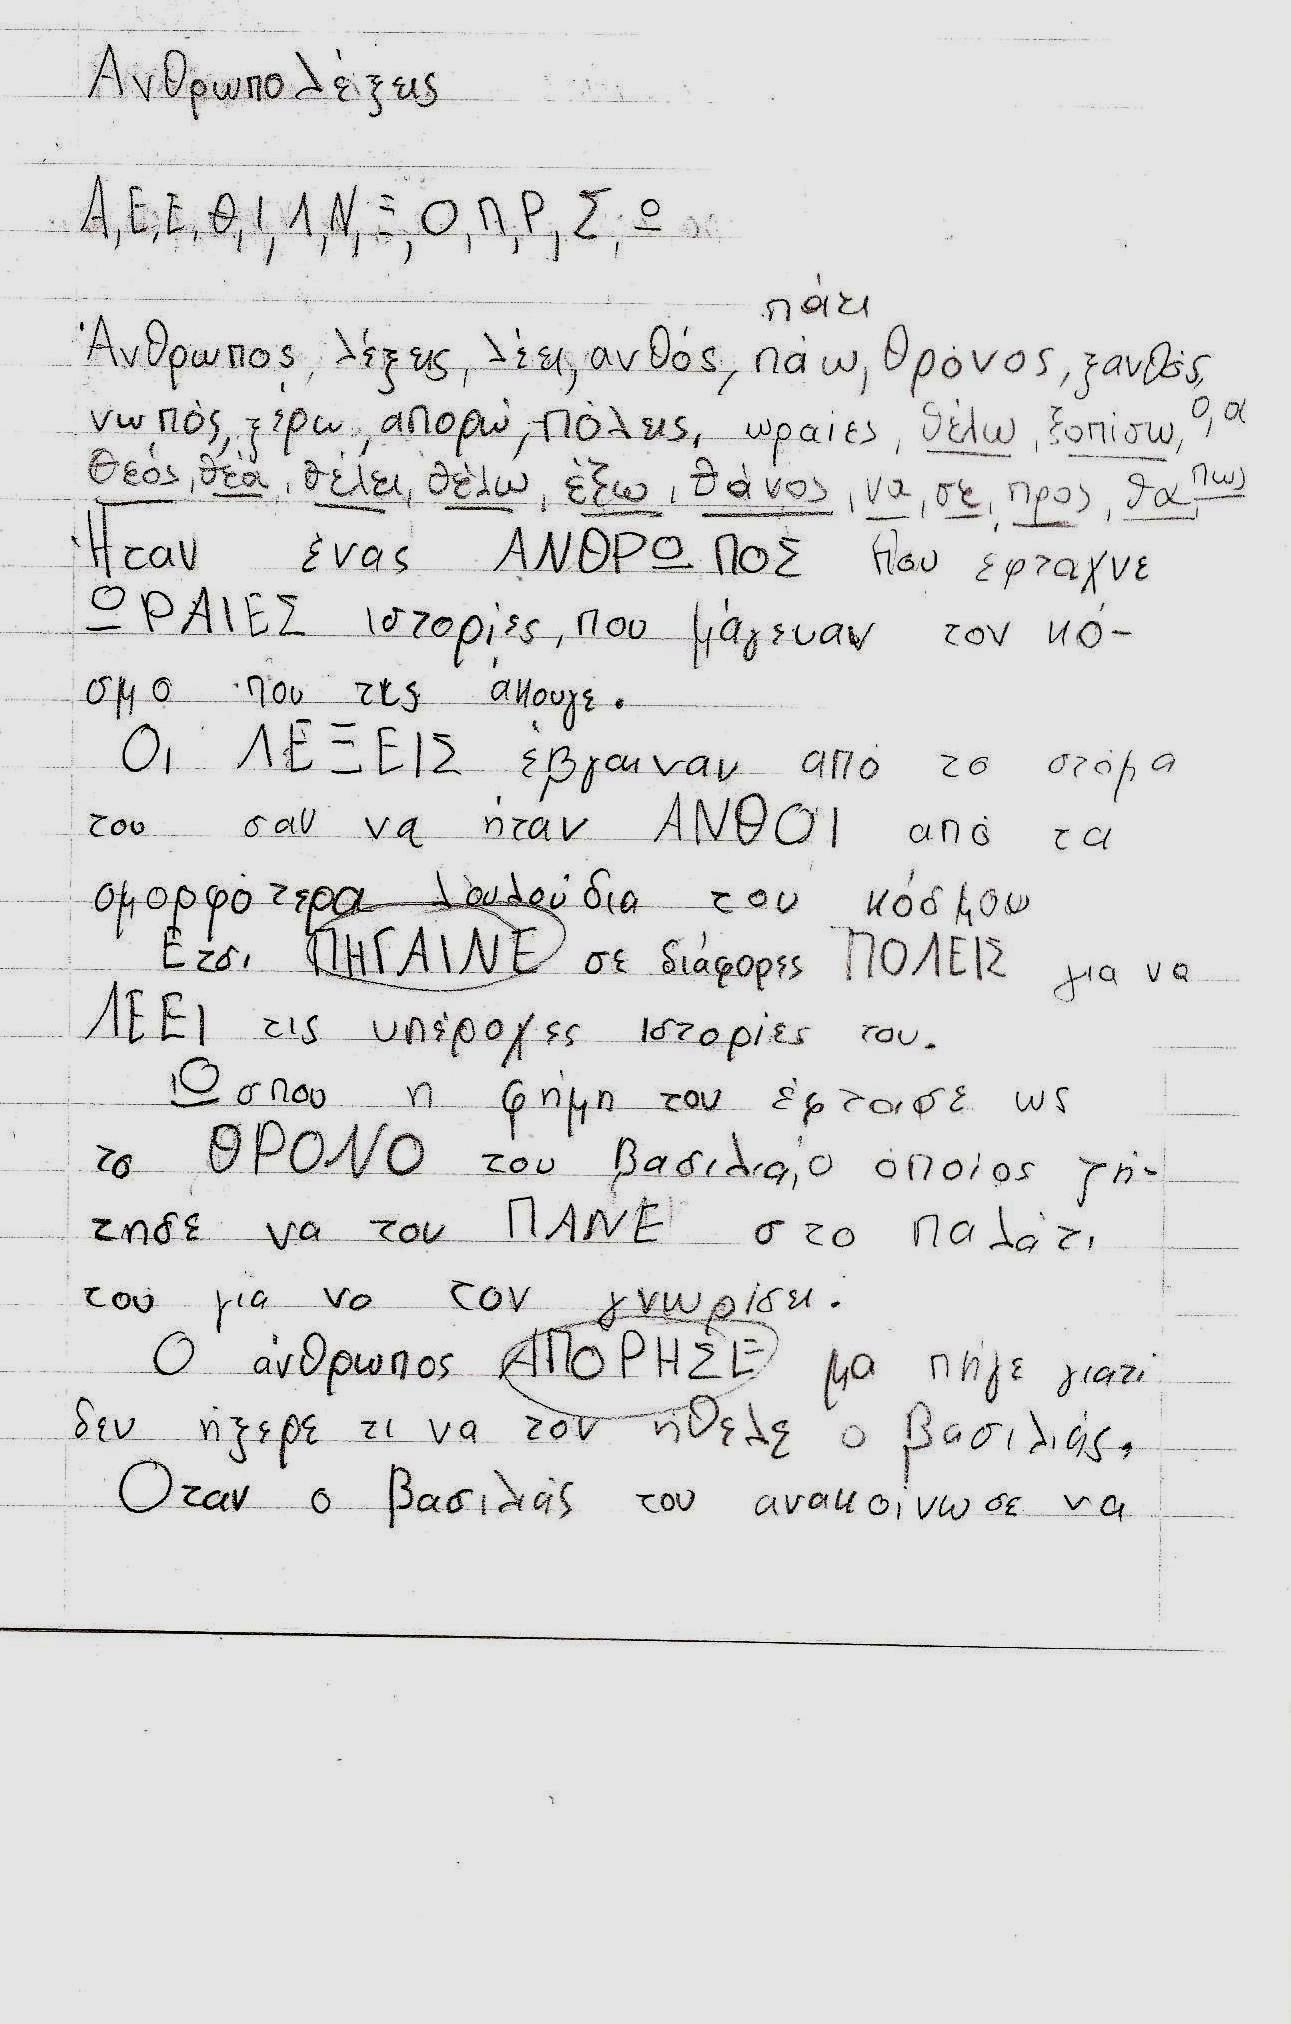 Ανθρωπολέξεις
Α,Ε,Ε,Θ,Ι,Λ,Ν,Ξ,Ο,Π,Ρ,Σ,Ω
πάει
Άνθρωπος, λέξεις, λέει, ανθός, πάω, θρόνος, ξανθός,
νωπός, ξέρω, απορώ, πόλεις, ωραίες, θέλω, ξοπίσω, ο, α
θεός, θέα, θέλει, θέλω, έξω, θάνος, να, σε, προς, θα, πως
Ήταν ένας ΑΝΘΡΩΠΟΣ που έφταχνε
ΩΡΑΙΕΣ ιστορίες, που μάγευαν τον κό-
σμο που τις άκουγε.
Οι ΛΕΞΕΙΣ έβγαιναν από το στόμα
του σαν να ήταν ΑΝΘΟΙ από τα
ομορφότερα λουλούδια του κόσμου
Ετσι ΠΗΓΑΙΝΕ σε διάφορες ΠΟΛΕΙΣ για να
ΛΕΕΙ τις υπέροχες ιστορίες του.
Ώσπου η φήμη του έφτασε ως
το ΘΡΟΝΟ του βασιλιά, ο οποίος ζή-
τησε να του ΠΑΝΕ στο παλάτι
του για να τον γνωρίσει.
Ο άνθρωπος ΑΠΟΡΗΣΕ μα πήγε γιατί
δεν ήξερε τι να τον ήθελε ο βασιλιάς.
Οταν ο βασιλιάς του ανακοίνωσε να